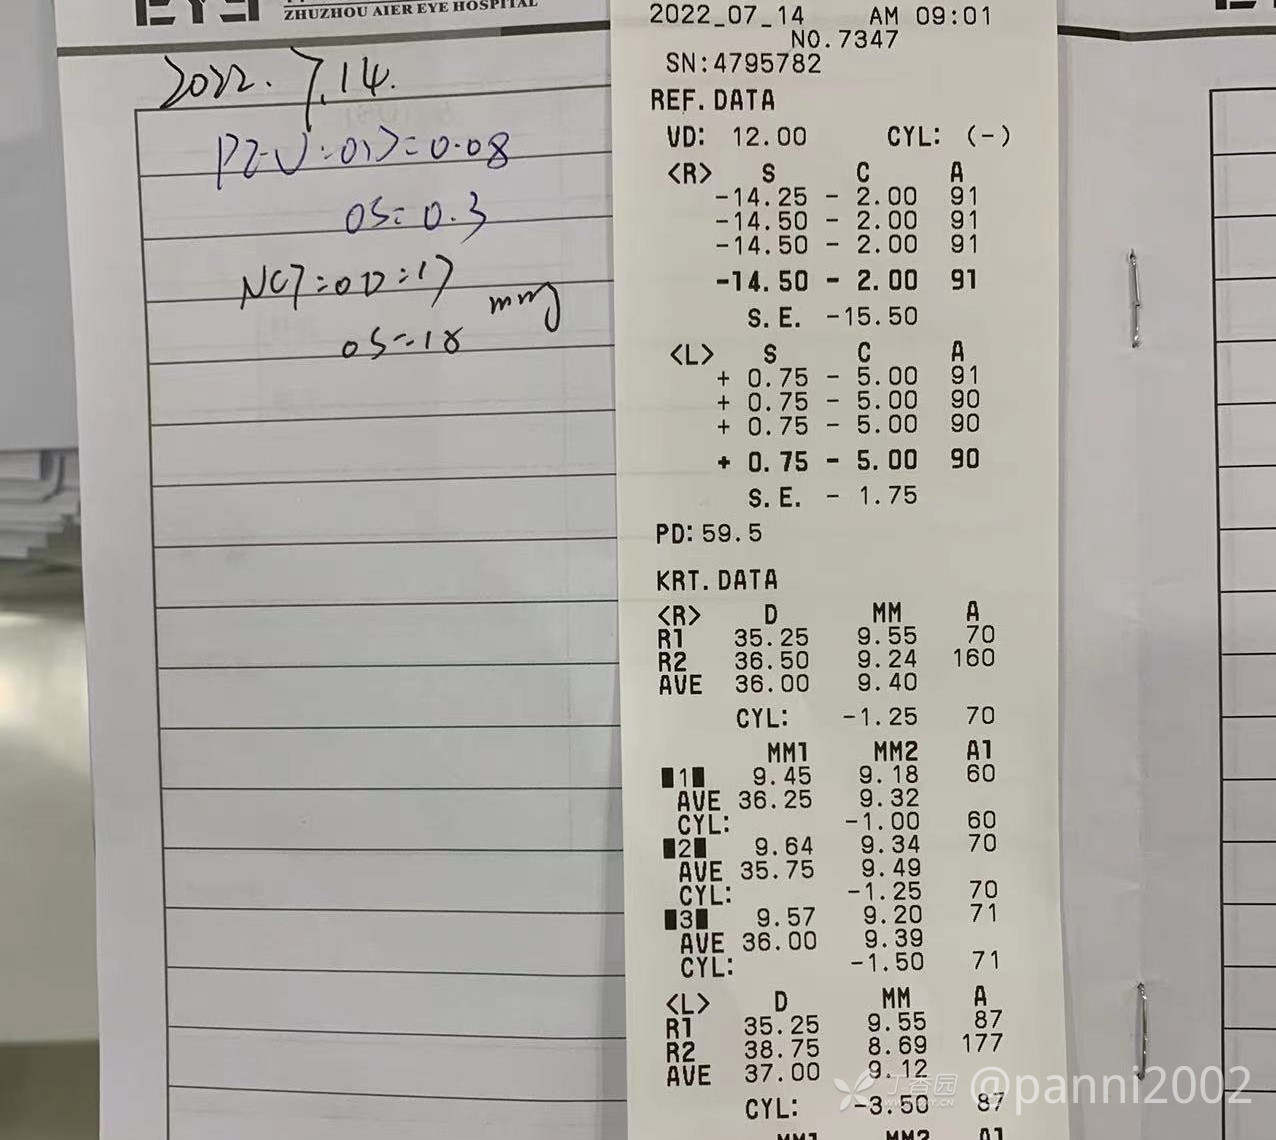 EYE
ZHUZHOU AIER EYE HOSPITAL
2022.7.14.
PZ-V:OD=0.08
OS=0.3
NCT=OD=17
mmg
OS=18
2022_07_14 AM 09:01
NO.7347
SN:4795782
REF.DATA
VD: 12.00 CYL: (-)
<R> S C A
-14.25 - 2.00 91
-14.50 - 2.00 91
-14.50 - 2.00 91
-14.50 - 2.00 91
S.E. -15.50
<L> S C A
+ 0.75 - 5.00 91
+ 0.75 - 5.00 90
+ 0.75 - 5.00 90
+ 0.75 - 5.00 90
S.E. - 1.75
PD:59.5
KRT.DATA
<R> D MM A
R1 35.25 9.55 70
R2 36.50 9.24 160
AVE 36.00 9.40
CYL: -1.25 70
MM1 MM2 A1
1 9.45 9.18 60
AVE 36.25 9.32
CYL: -1.00 60
2 9.64 9.34 70
AVE 35.75 9.49
CYL: -1.25 70
3 9.57 9.20 71
AVE 36.00 9.39
CYL: -1.50 71
<L> D MM A
R1 35.25 9.55 87
R2 38.75 8.69 177
AVE 37.00 9.12
CYL: -3.50 87
MM1 MM2 A1
丁香园 @panni2002